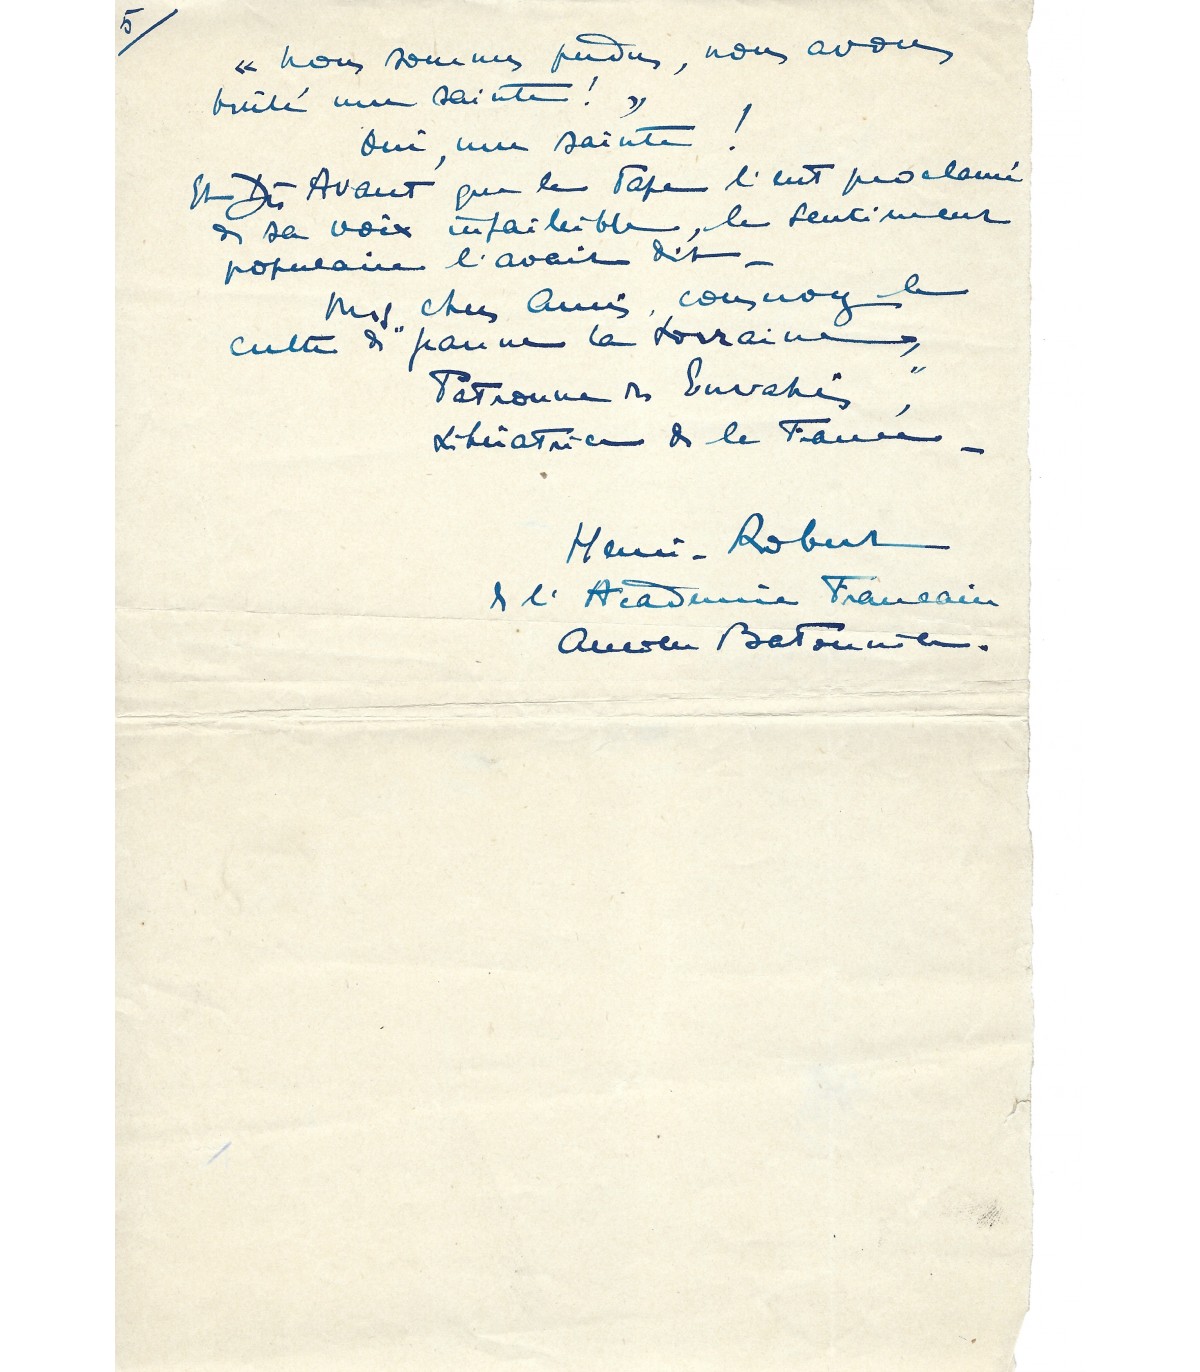 5/
« Nous sommes perdus, nous avons
brûlé une sainte ! »
Oui, une sainte !
Et Dès Avant que le Pape l'eut proclamé
de sa voix infaillible, le sentiment
populaire l'avait dit _
Mes chers Amis, le
culte de "Jeanne la Lorraine,
Patronne des Envahis",
Libératrice de la France _
Henri-Robert
de l'Académie Française
Ancien Batonnier.